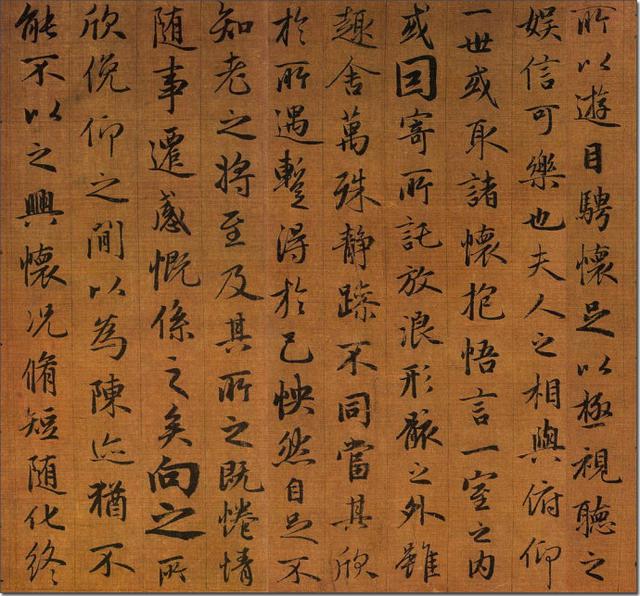 所以遊目騁懷足以極視聽之
娛信可樂也夫人之相與俯仰
一世或取諸懷抱悟言一室之內
或因寄所託放浪形骸之外雖
趣舍萬殊静躁不同當其欣
於所遇蹔得於己怏然自足不
知老之將至及其所之既惓情
随事遷感慨係之矣向之所
欣俛仰之閒以為陳迹猶不
能不以之興懷况脩短随化終